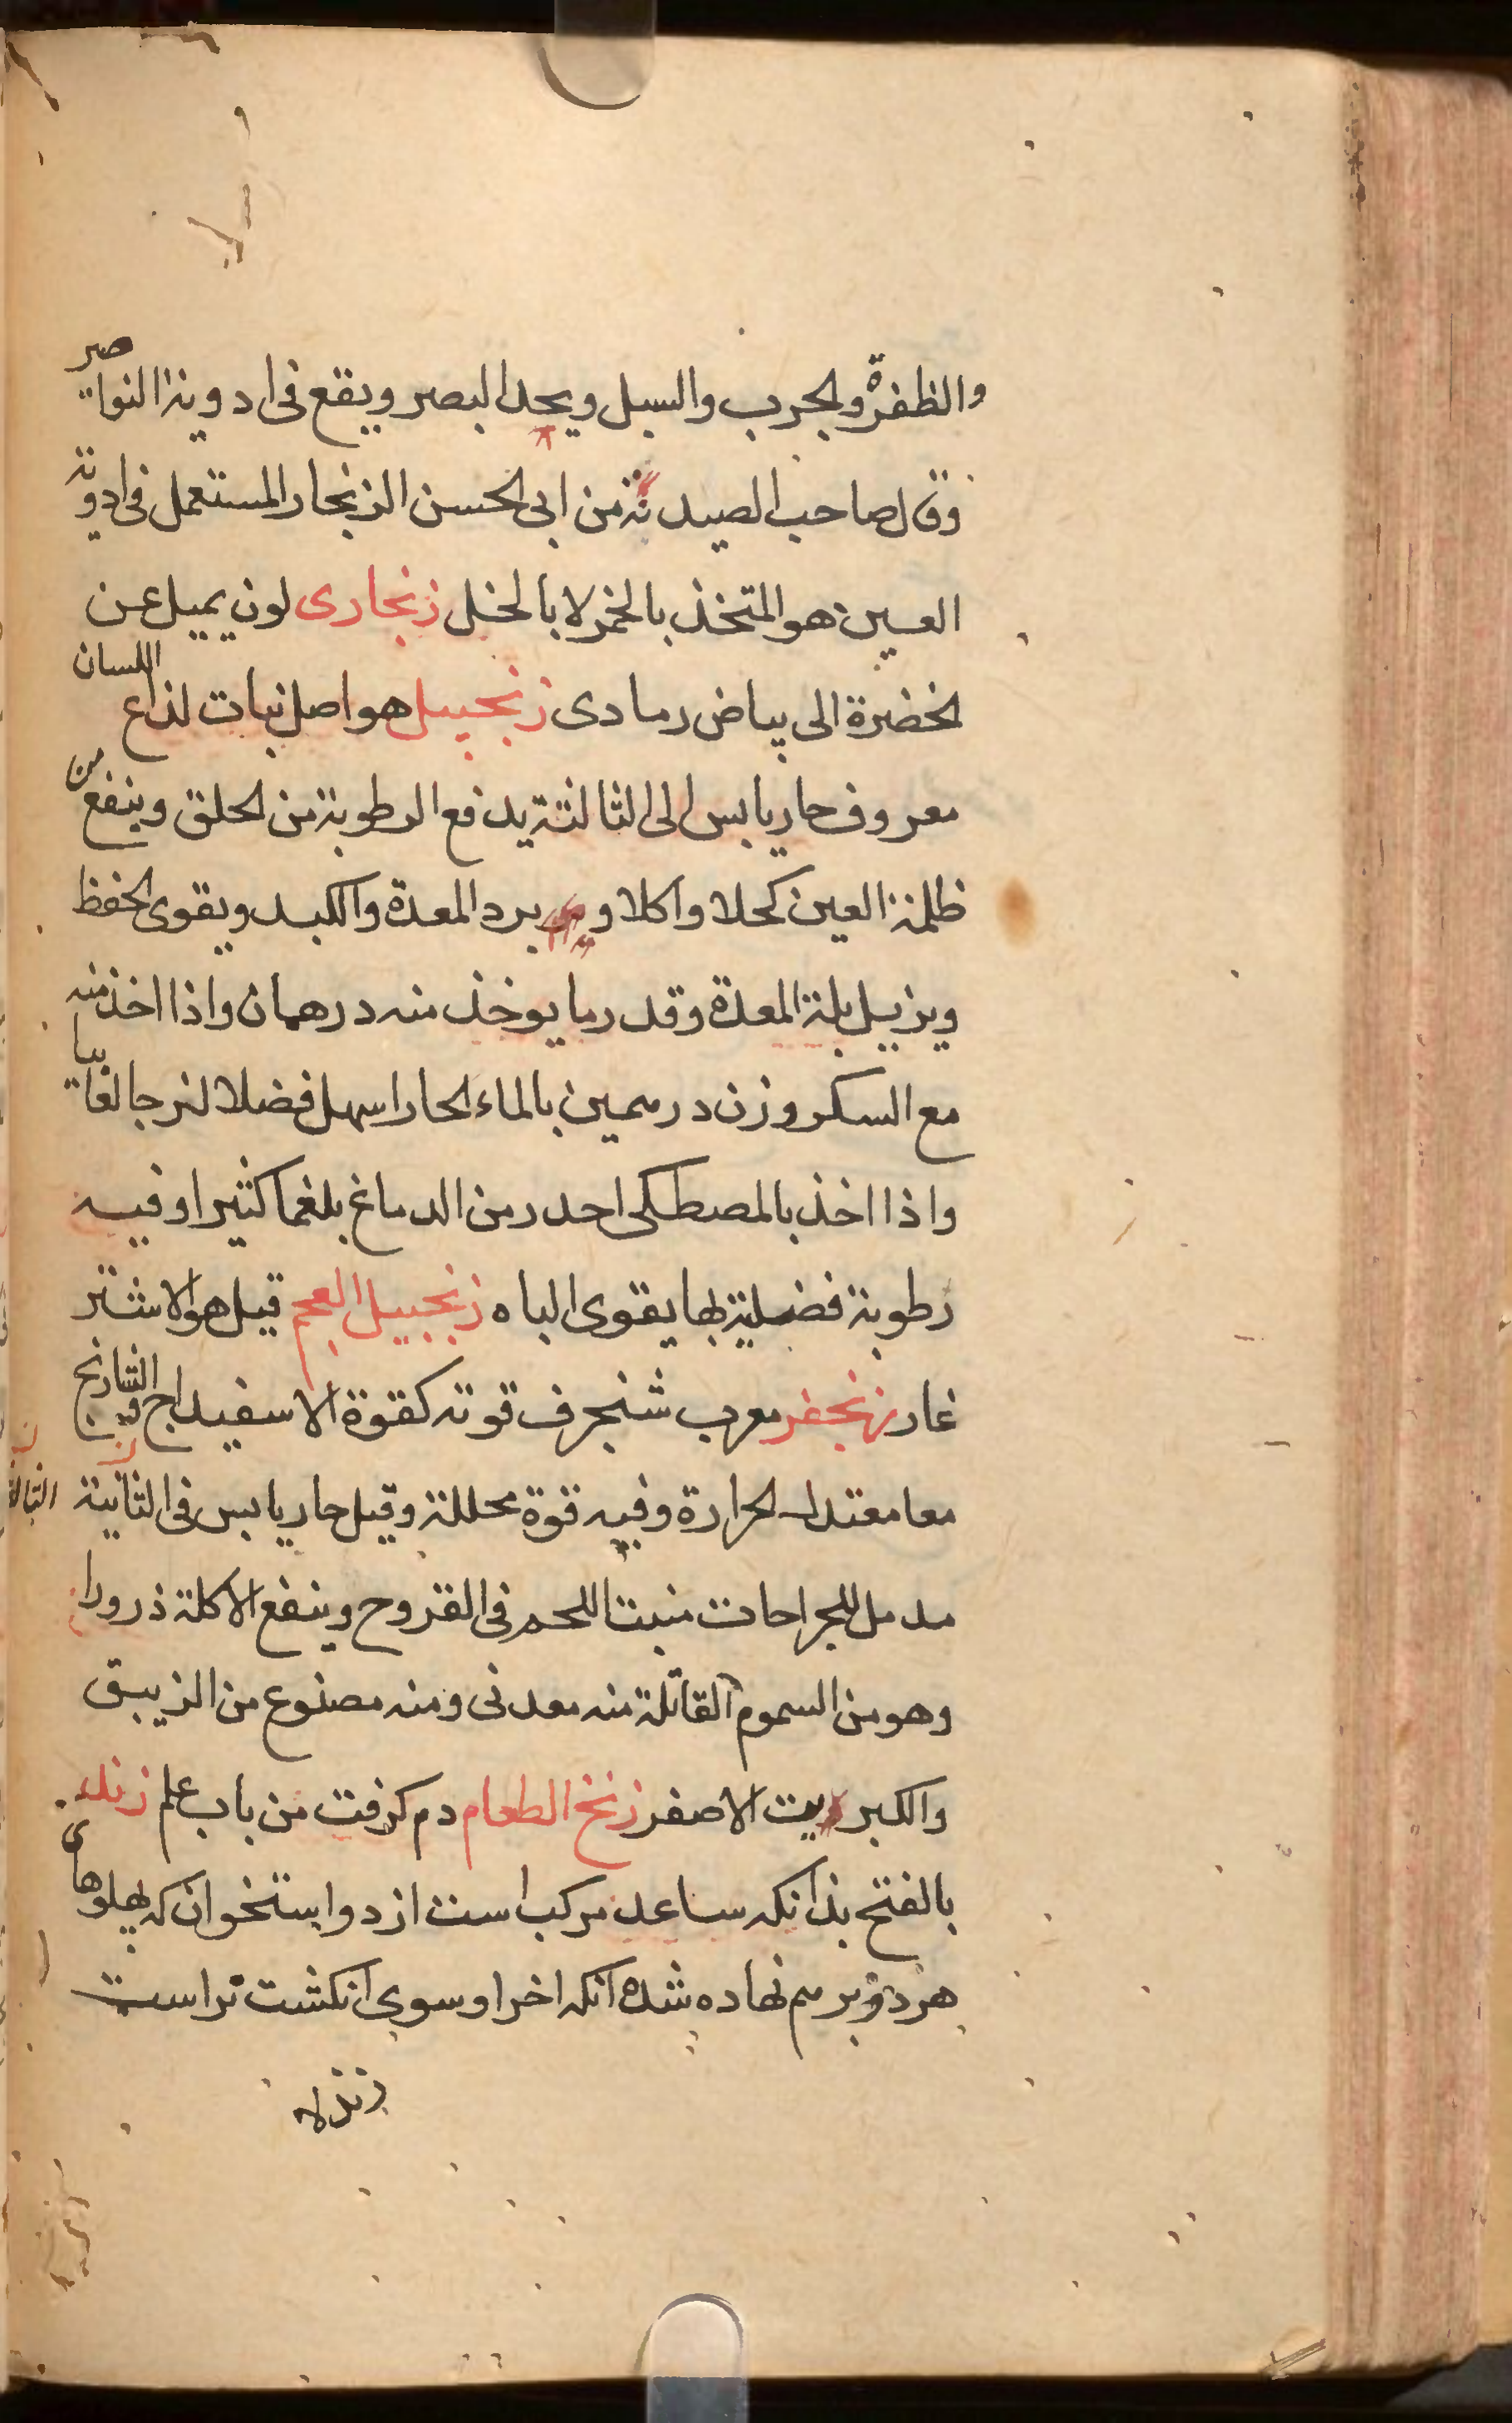 والظفرة والجرب والسبل ويحد البصر ويقع فى ادوية النواصر
وقال صاحب الصيدنة من ابى الحسن الزنجار المستعمل فى ادوية
العين هو المتخذ بالخمر لا بالخل زنجارى لون يميل عن
الخضرة الى بياض رمادى زنجبيل هو اصل نبات لذاع اللسان
معروف حار يابس الى الثالثة يدفع الرطوبة من الحلق وينفع من
ظلمة العين كحلا واكلا و برد المعدة والكبد ويقوى الحفظ
ويزيل بلة المعدة وقدر ما يوخذ منه درهمان واذا اخذ منه
مع السكر وزن درهمين بالماء الحار اسهل فضلا لزجا لعابيا
واذا اخذ بالمصطكى احدر من الدماغ بلغما كثيرا وفيه
رطوبة فضلية بها يقوى الباه زنجبيل العجم قيل هو الاشتر
غار زنجفر معرب شنجرف قوته كقوة الاسفيداج
معا معتدل الحرارة وفيه قوة محللة وقيل حار يابس فى الثانية
الثالثة
مدمل للجراحات منبت اللحم فى القروح وينفع الاكلة ذرورا
وهو من السموم القاتلة منه معدنى ومنه مصنوع من الزيبق
والكبريت الاصفر زنخ الطعام دم كرفت من باب علم زند
بالفتح بذانكه ساعد مركب است از دو استخوان كه پهلوهاى
هر دو برهم نهاده شده انكه اخر او سوى انكشت نر است
زند لا